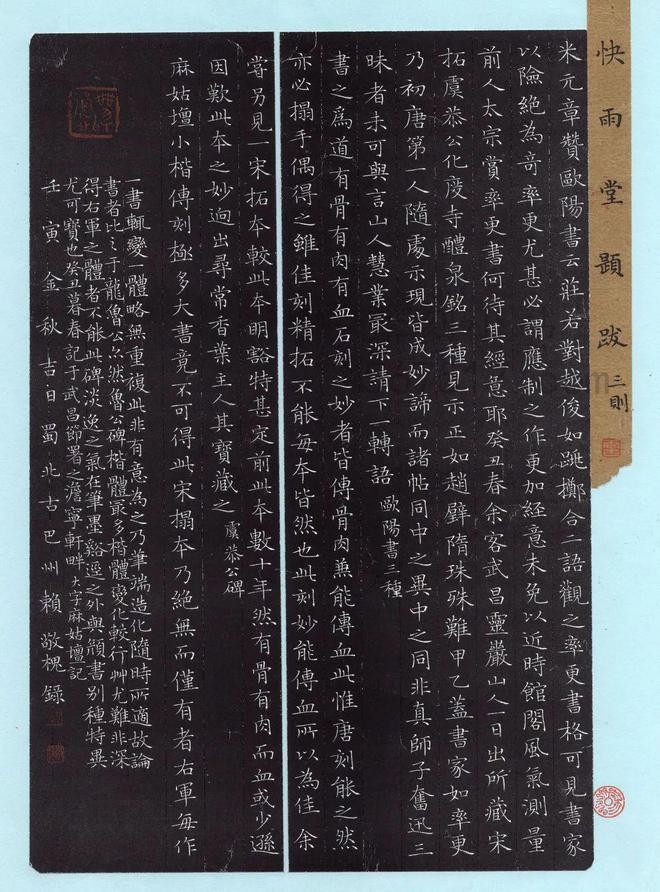 快雨堂題跋 三則
米元章贊歐陽書云莊若對越後如跳擲合二語觀之率更書格可見書家
以險絕為奇率更尤甚必謂應制之作更加經意未免以近時館閣風氣測量
前人太宗賞率更書何待其經意耶癸丑春余客武昌靈巖山人一日出所藏宋
拓虞恭公化度寺醴泉銘三種見示正如趙璧隋珠殊難甲乙蓋書家如率更
乃初唐第一人隨處示現皆成妙諦而諸帖同中之異中之同非真師子奮迅三
昧者未可與言山人慧業冣深請下一轉語 歐陽書三種
書之為道有骨有肉有血石刻之妙者皆傳骨肉兼能傳血此惟唐刻能之然
亦必搨手偶得之雖佳刻精拓不能每本皆然也此刻妙能傳血所以為佳余
嘗另見一宋拓本較此本明豁特甚定前此本數十年然有骨有肉而血或少遜
因歎此本之妙逈出尋常杳葉主人其寶藏之 虞恭公碑
麻姑壇小楷傳刻極多大書竟不可得此宋搨本乃絕無而僅有者右軍每作
一書輒變一體略無重複此非有意為之乃筆端造化隨時所適故論
書者比之于龍魯公亦然魯公碑楷體冣多楷體變化較行艸尤難非深
得右軍之體者不能此碑淡逸之氣在筆墨谿逕之外與顏書別種特異
尤可寶也癸丑暮春記于武昌節署之澹寧軒畔 大字麻姑壇記
壬寅金秋吉日蜀北古巴州賴敬槐錄